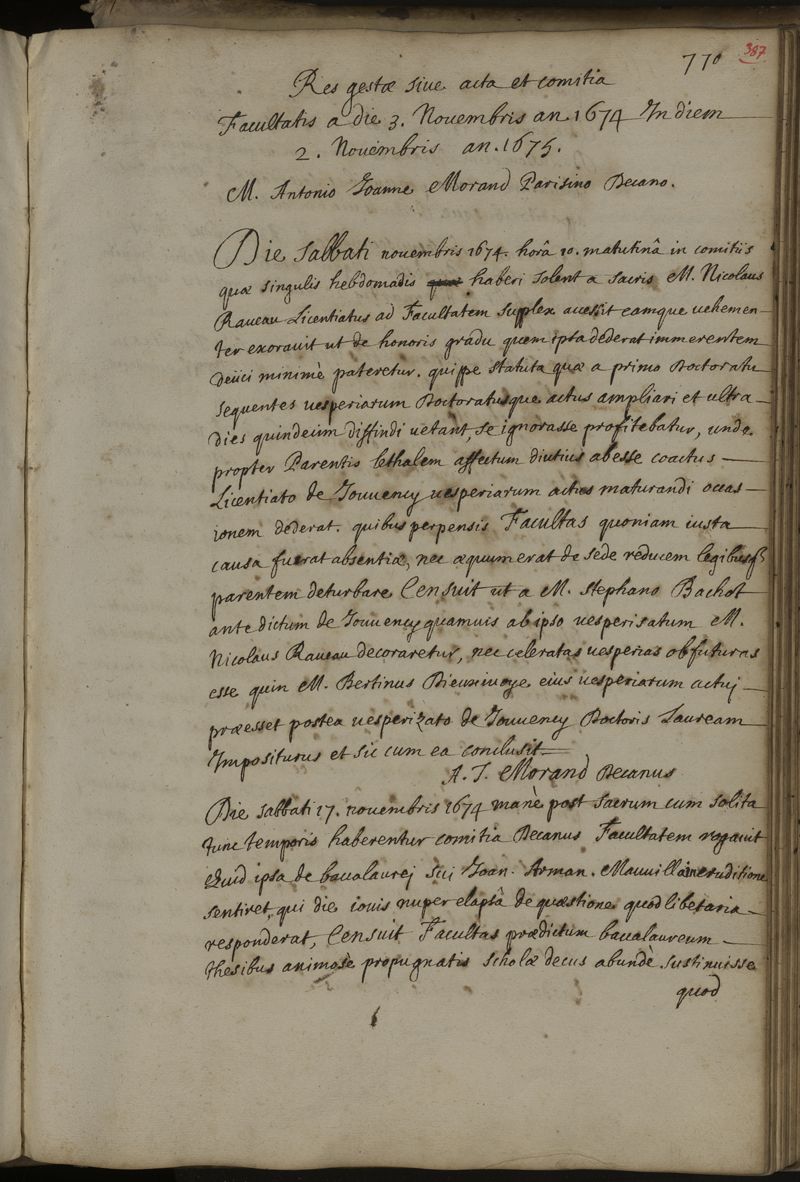 770 387
Res gestæ siue acta et comitia
Facultatis a die 3. Nouembris an. 1674 In diem
2. Nouembris an. 1675.
M. Antonio Joanne Morand Parisino Decano.
Die sabbati nouembris 1674. horâ 10. matutinâ in comitiis
quæ singulis hebdomadis haberi solent a sacris M. Nicolaus
Raueau Licentiatus ad Facultatem supplex accessit eamque uehemen-
ter exorauit ut de honoris gradu quem ipsa dederat immerentem
deiici minimè pateretur. quippe statuta quæ a primo Doctoratu
sequentes uesperiarum Doctoratusque actus ampliari et ultra
dies quindecim diffindi uetant, se ignorasse profitebatur, unde
propter Parentis lethalem affectum diutius abesse coactus
Licentiato de Jouuency uesperiarum actus maturandi occas-
ionem dederat. quibus perpensis Facultas quoniam iusta
causa fuerat absentiæ, nec æquum erat de sede reducem legibusq
parentem deturbare Censuit ut a M. Stephano Bachot
ante dictum de Jouuency quamuis ab ipso uesperisatum M.
Nicolaus Raueau decoraretur, nec celeratas uesperias obfuturas
esse quin M. Bertinus Dieuxiuoye eius uesperiarum actuj
præesset postea uesperizato de Jouuency Doctoris Lauream
Impositurus et sic cum ea conclusit
A. J. Morand Decanus
Die sabbati 17. nouembris 1674 manè post sacrum cum solita
tunc temporis haberentur comitia Decanus Facultatem rogauit
quid ipsa de baccalaurej sui Joan. Arman. Mauuillain eruditione
sentiret, qui die iouis nuper elapsâ de quæstione quodlibetaria
responderat, Censuit Facultas prædictum baccalaureum
thesibus animosè propugnatis scholæ decus abundè sustinuisse
quod